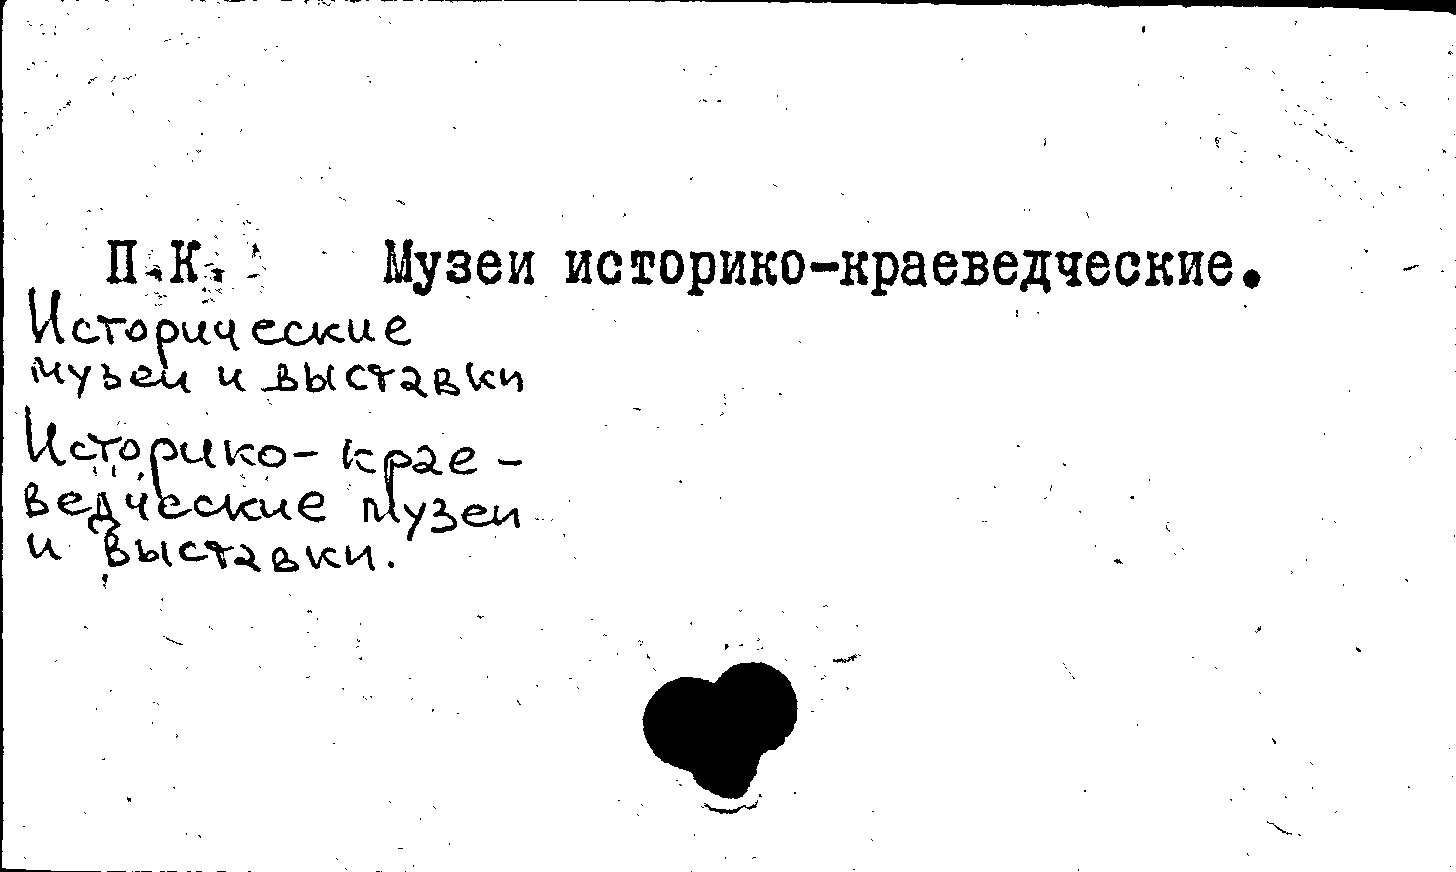 П.К. Музеи историко-краеведческие.
Исторические
музеи и выставки
Историко-крае-
ведческие музеи
и выставки.